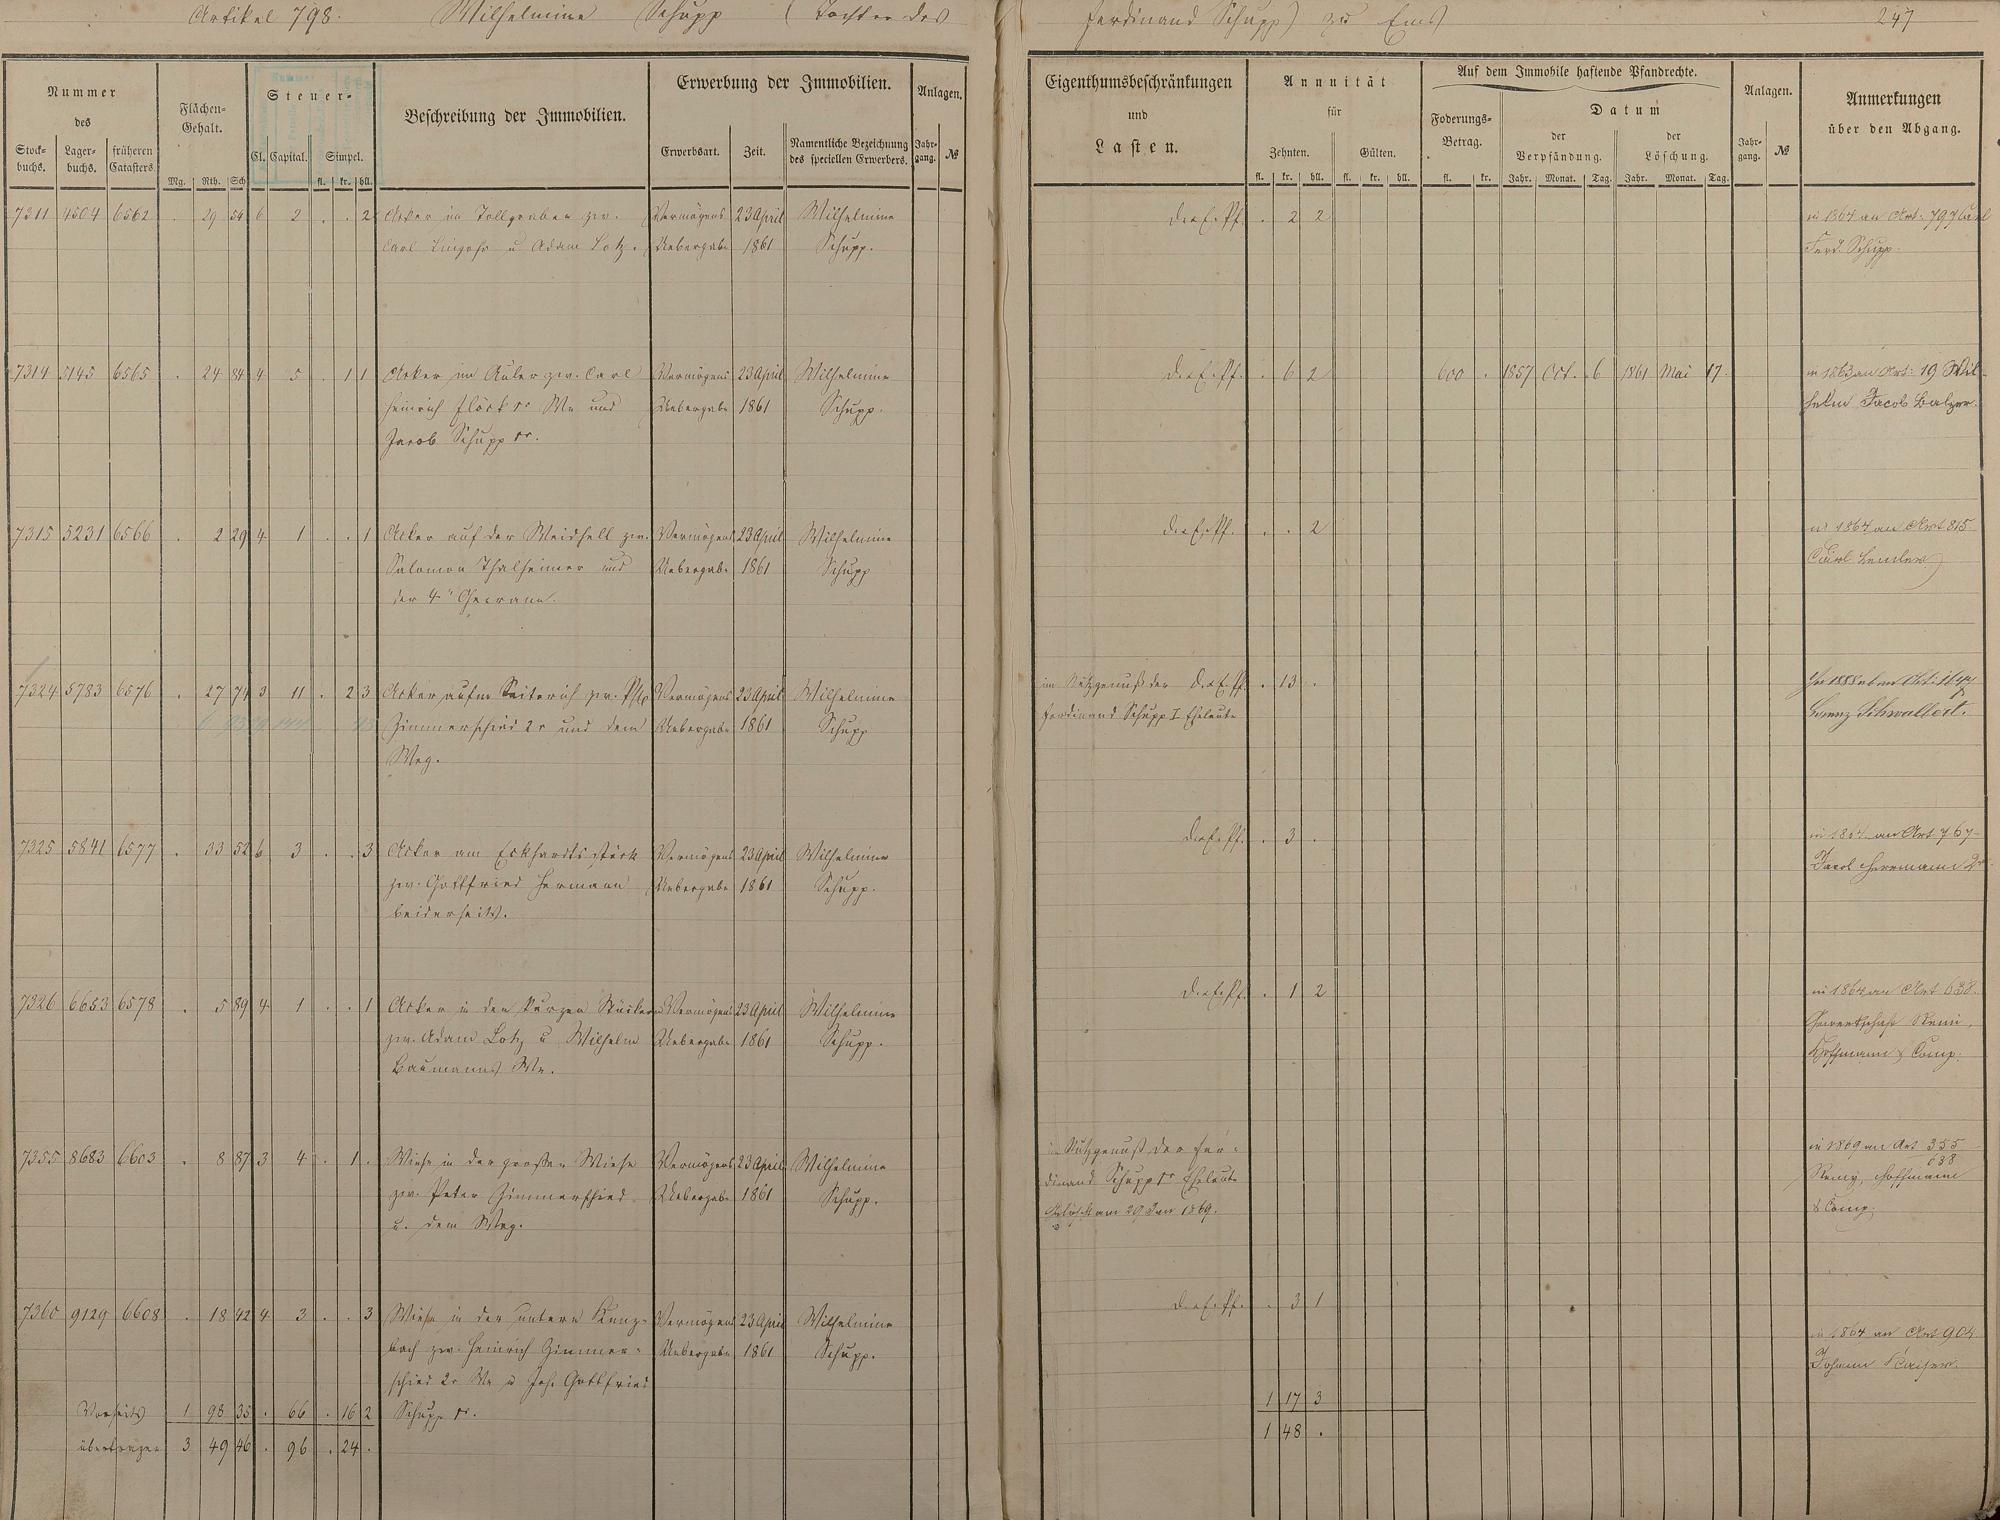 Artikel 798. Wilhelmine Schupp (Tochter des Ferdinand Schupp) zu Ems 247
Nummer des
Stock-buchs. Lager-buchs. früheren Catasters.
Flächen-Gehalt.
Mg. Rth. Sch
Steuer-
Cl. Capital. Simpel.
fl. kr. hll.
Beschreibung der Immobilien.
Erwerbung der Immobilien.
Erwerbsart. Zeit. Namentliche Bezeichnung des speciellen Erwerbers.
Anlagen.
Jahr-gang. №
Eigenthumsbeschränkungen
und
Lasten.
Annuität
für
Zehnten. Gülten.
fl. kr. hll. fl. kr. hll.
Auf dem Immobile haftende Pfandrechte.
Foderungs-Betrag.
fl. kr.
Datum
der Verpfändung. der Löschung.
Jahr. Monat. Tag. Jahr. Monat. Tag.
Anlagen.
Jahr-gang. №
Anmerkungen
über den Abgang.
7311 4504 6562 . 29 54 6 2 . . 2 Acker im Tollgraben zw. Vermögens 23 April Wilhelmine
Carl Linzohr u Adam Lotz. Uebergabe 1861 Schupp.
D. a. E. Pf. . 2 2
in 1864 an Art: 797 Carl
Ferd. Schupp.
7314 5145 6565 . 24 84 4 5 . 1 1 Acker im Auler zw. Carl Vermögens 23 April Wilhelmine
Heinrich Flöck sr We und Uebergabe 1861 Schupp.
Jacob Schupp sr.
D. a. E. Pf. . 6 2 600 . 1857 Oct. 6 1861 Mai 17.
in 1863 an Art: 19 Wil-
helm Jacob Balzer.
7315 5231 6566 . 2 29 4 1 . . 1 Acker auf der Weidhell zw. Vermögens 23 April Wilhelmine
Salomon Thalheimer und Uebergabe 1861 Schupp
der 4" Gewann.
D. a. E. Pf. . . 2
in 1864 an Art 815
Carl Linkler
7324 5783 6576 . 27 74 3 11 . 2 3 Acker aufm Vermögens 23 April Wilhelmine
Zimmerschied 2r und dem Uebergabe 1861 Schupp
Weg.
im Nutzgenuß der D. a. E. Pf. . 13 .
Ferdinand Schupp I Eheleute
Schwalbert.
7325 5841 6577 . 33 52 6 3 . . 3 Acker am Eckhardtsstück Vermögens 23 April Wilhelmine
zw. Gottfried Hermann Uebergabe 1861 Schupp.
beiderseits.
D. a. E. Pf. . 3 .
an Art 767
Jacob Herrmann 2r
7326 6653 6578 . 5 89 4 1 . . 1 Acker in den kurzen Stücken Vermögens 23 April Wilhelmine
zw. Adam Lotz u Wilhelm Uebergabe 1861 Schupp.
Baumanns We.
D. a. E. Pf. . 1 2
in 1864 an Art 638
Gewerkschaft Remi,
Hoffmann & Comp.
7355 8683 6603 . 8 87 3 4 . 1 . Wiese in der grossen Wiese Vermögens 23 April Wilhelmine
zw. Peter Zimmerschied Uebergabe 1861 Schupp.
u. dem Weg.
im Nutzgenuß der Fer-
dinand Schupp sr Eheleute
Gelöscht am 29 Jan 1869.
in 1869 an Art 355
638
Remy, Hoffmann
& Comp.
7360 9129 6608 . 18 42 4 3 . . 3 Wiese in der untern Kunz- Vermögens 23 April Wilhelmine
bach zw. Heinrich Zimmer- Uebergabe 1861 Schupp.
schied 2r We u Joh. Gottfried
Schupp sr.
D. a. E. Pf. . 3 1
in 1864 an Art 904
Johann Kaiser.
Vorseits 1 98 35 . 66 . 16 2 1 17 3
übertragen 3 49 46 . 96 . 24 . 1 48 .